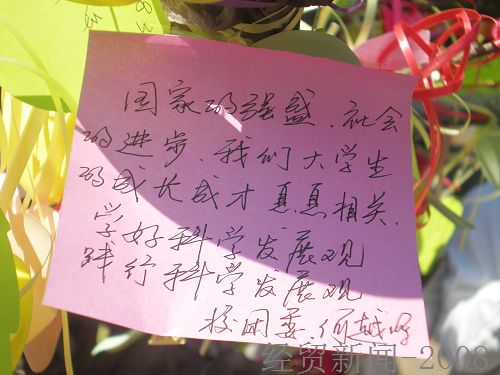 国家的强盛、社会
的进步、我们大学生
的成长成才息息相关.
学好科学发展观
践行科学发展观
校团委 何越
经贸新闻-2008